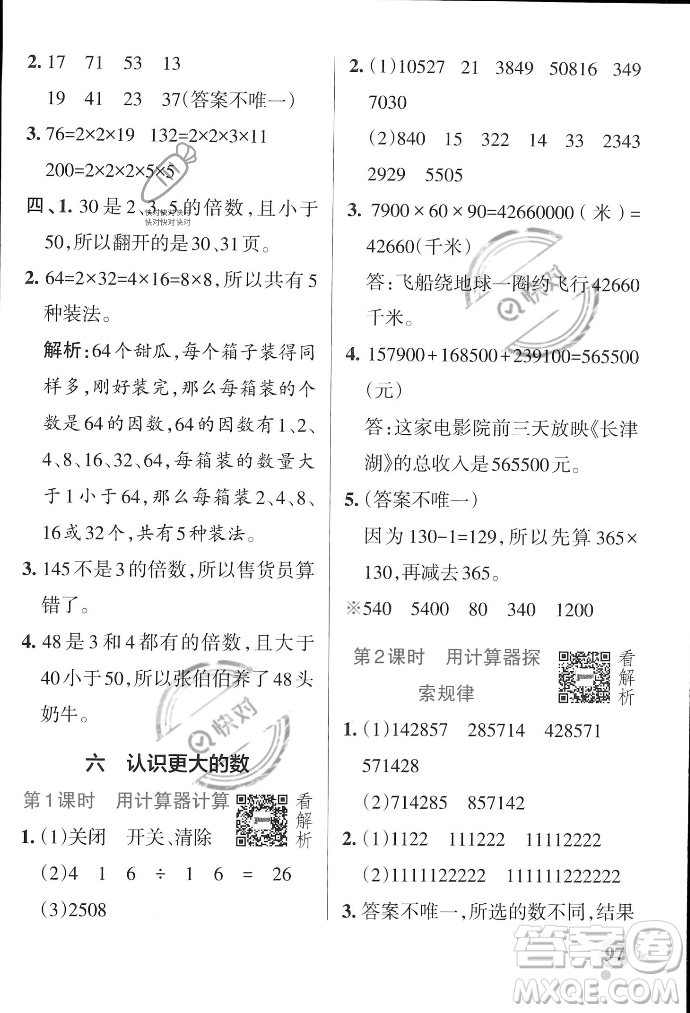 2. 17 71 53 13
19 41 23 37(答案不唯一)
3. 76=2×2×19 132=2×2×3×11
200=2×2×2×5×5
四、1. 30是2、3、5的倍数,且小于
50,所以翻开的是30、31页。
2. 64=2×32=4×16=8×8,所以共有5
种装法。
解析:64个甜瓜,每个箱子装得同
样多,刚好装完,那么每箱装的个
数是64的因数,64的因数有1、2、
4、8、16、32、64,每箱装的数量大
于1小于64,那么每箱装2、4、8、
16或32个,共有5种装法。
3. 145不是3的倍数,所以售货员算
错了。
4. 48是3和4都有的倍数,且大于
40小于50,所以张伯伯养了48头
奶牛。
六 认识更大的数
第1课时 用计算器计算
看解析
1. (1)关闭 开关、清除
(2)4 1 6 ÷ 1 6 = 26
(3)2508
2. (1)10527 21 3849 50816 349
7030
(2)840 15 322 14 33 2343
2929 5505
3. 7900×60×90=42660000(米)=
42660(千米)
答:飞船绕地球一圈约飞行42660
千米。
4. 157900+168500+239100=565500
(元)
答:这家电影院前三天放映《长津
湖》的总收入是565500元。
5. (答案不唯一)
因为130-1=129,所以先算365×
130,再减去365。
※540 5400 80 340 1200
第2课时 用计算器探
索规律
看解析
1. (1)142857 285714 428571
571428
(2)714285 857142
2. (1)1122 111222 11112222
(2)1111122222 111111222222
3. 答案不唯一,所选的数不同,结果
97
快对快对快对
快对快对快对
快对
快对
答案圈
MXQE.COM